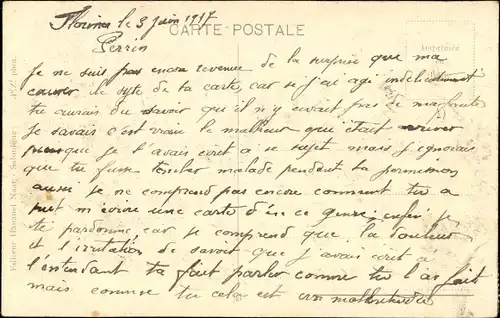 le 3 Juin 1917
CARTE POSTALE
Perrin
Je ne suis pas encore revenue de la surprise que ma
causer le style de ta carte, car si j'ai agi indélicatement
tu aurais du savoir qu'il n'y avait pas de ma faute
Je savais c'est vrai le malheur que était arriver
puisque je l'avais ecrit a se sujet mais j'ignorais
que tu fusse tomber malade pendant ta permission
aussi je ne comprend pas encore comment tu a
put m'ecrire une carte d'un ce genre, enfin je
te pardonne, car je comprend que la douleur
et l'irritation de savoir que j'avais ecrit a
l'intendant ta fait parler comme tu l'as fait
mais comme tu cela est
Imprimée
phot.